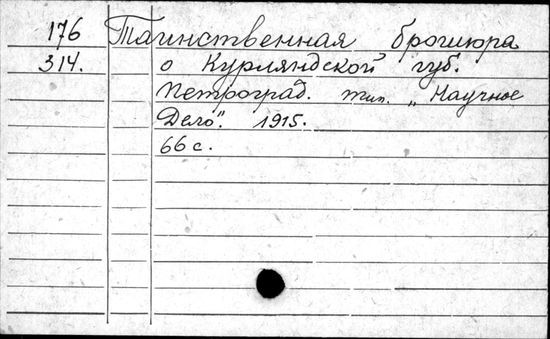 176 Таинственная брошюра
314. о Курляндской губ.
Петроград. тип. „Научное
Дело". 1915.
66 с.